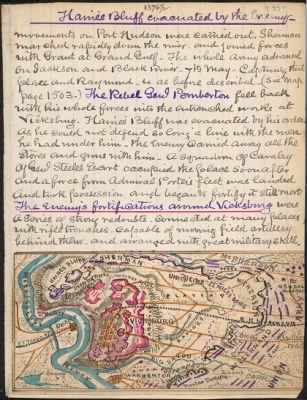 1376½
Haines Bluff evacuated by the Enemy
movements on Port Hudson were carried out. Sherman
marched rapidly down the river and joined forces
with Grant at Grand Gulf. The whole army advanced
on Jackson and Black River
place and Raymond. as before described (See Map
page 1503.) The Rebel Genl Pemberton fell back
with his whole forces into the entrenched works at
Vicksburg. Haines Bluff was evacuated by his orders
as he could not defend so long a line with the men
he had under him. The enemy carried away all the
Stores and guns with him. A squadron of Cavalry
of Genl Steeles Escort occupied the place soon after
and a force from Admiral Porters fleet was landed
and took possession and began to fortify it still more
The enemy's fortifications around Vicksburg were
a series of strong redoubts. Connected at many places
with rifle trenches. Capable of moving field artillery
behind them. and arranged with great military skill.
SHERMAN
McPHERSON
HAINES BLUFF
VICKSBURG
UNION
R.R.
JACKSON
WARRENTON
UNION
RIVER